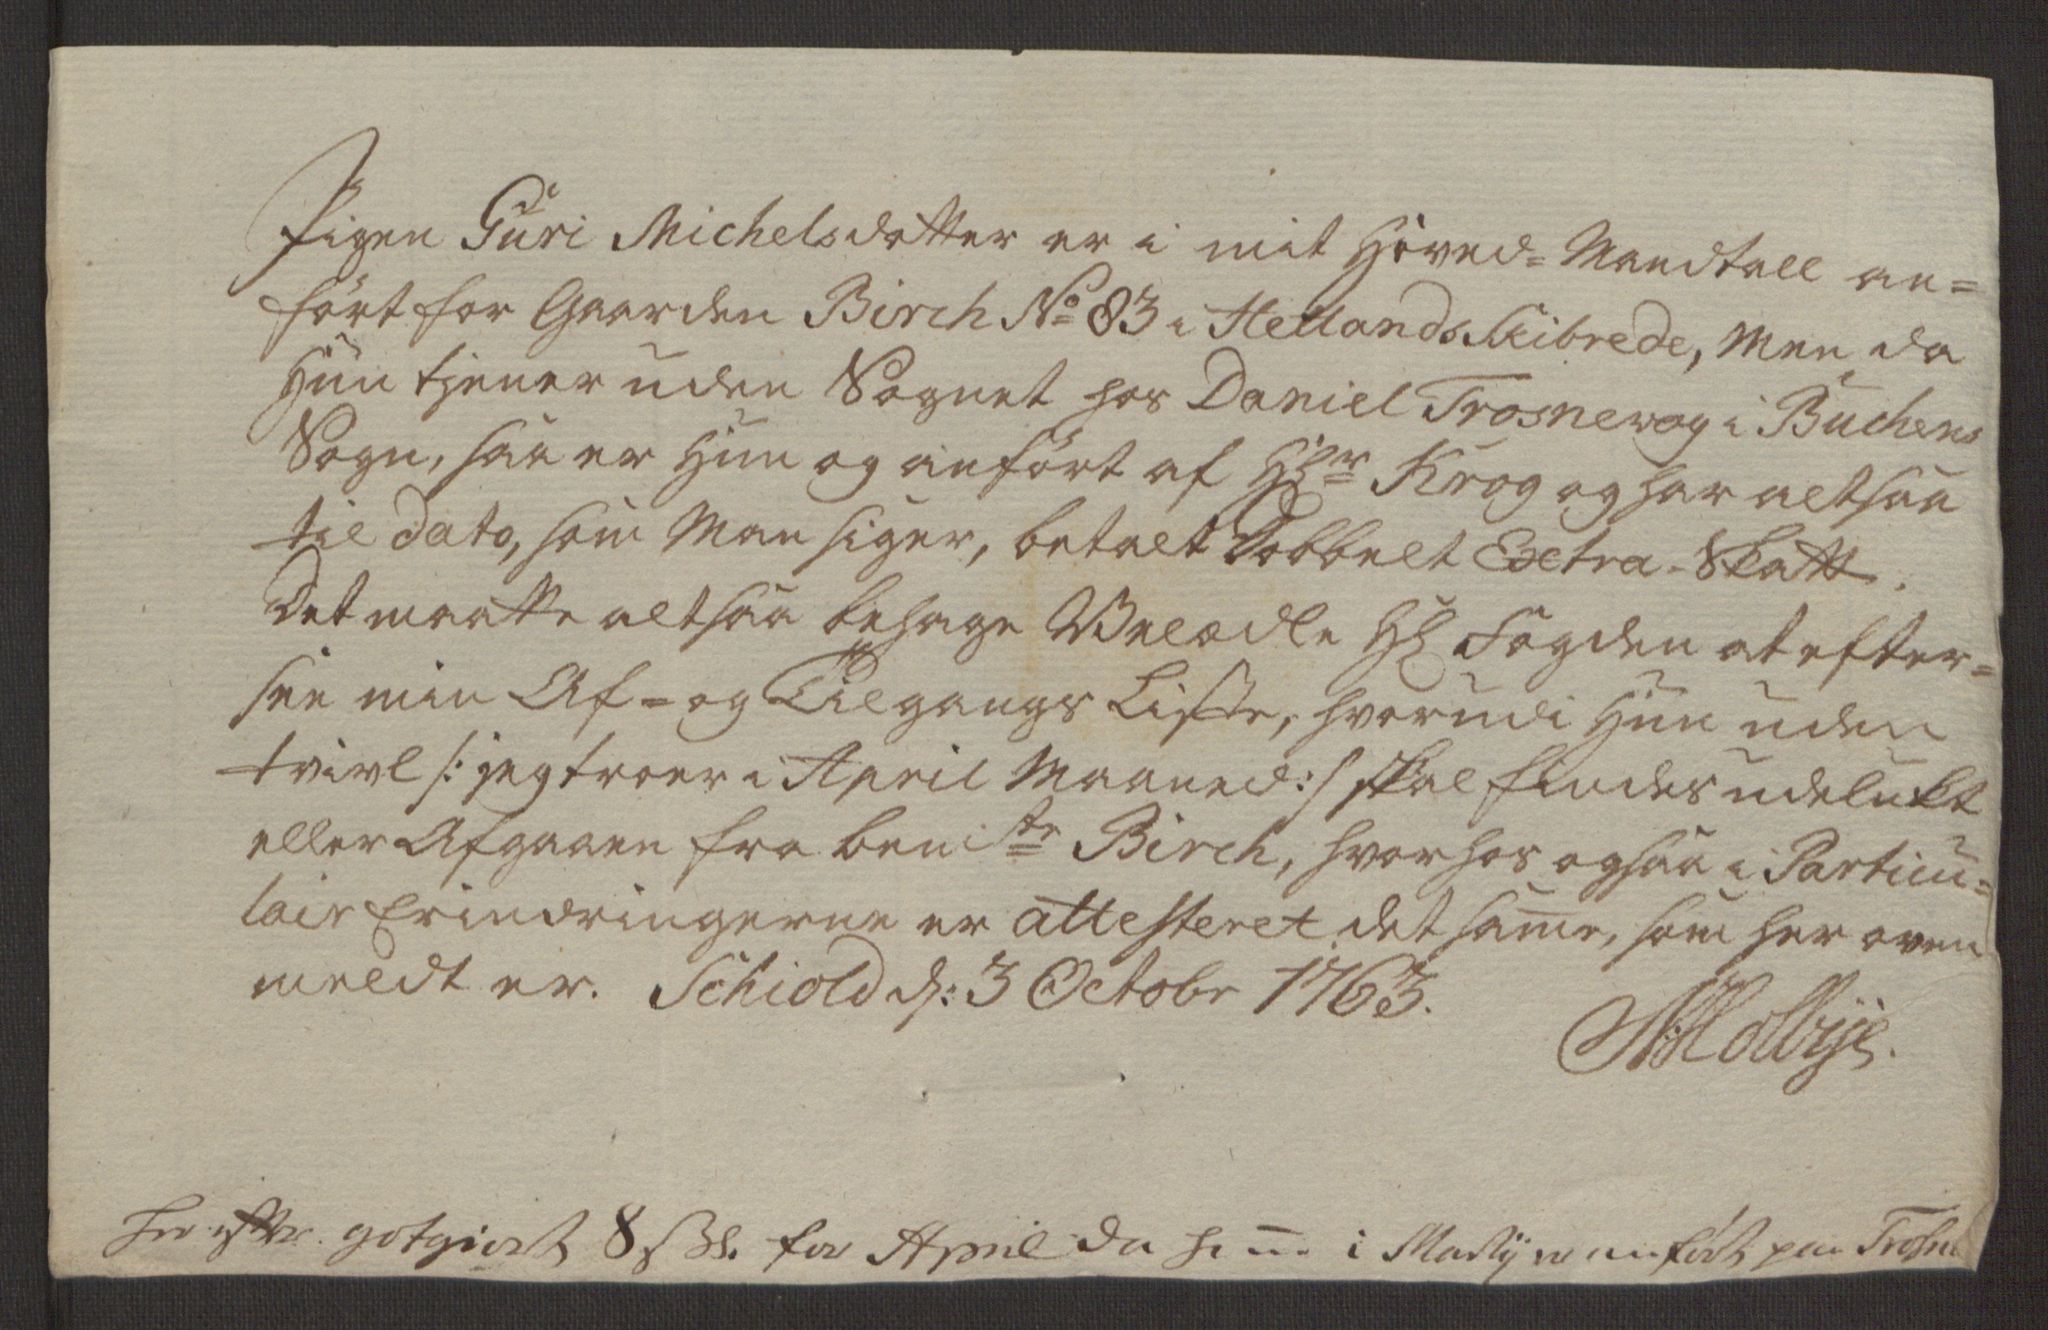 Pigen Guri Michelsdatter er i mit Hoved= Mandtall an=
ført for Gaarden Birch No 83 i Hetlands Skibrede, Men da
Hun tjener uden Sognet hos Daniel Trosnewag i Buchens
Sogn, saa er Hun og anført af Hr Krog og har altsaa
til dato, som Man siger, betalt Dobbelt Extra-Skatt.
Det maatte altsaa behage Velædle Hr Fogden at efter=
see min Af= og Tilgangs Liste, hvorudi Hun uden
tvivl /: jeg troer i April Maaned :/ skal findes udelukt
eller Afgaaen fra bemte Birch, hvorhos ogsaa i Particu=
lair Erindringerne er attesteret det samme, som her oven
meldt er. Schiold d: 3 Octobr 1763.
Her efter gotgiort 8 s for April da hun i Maÿ er anført paa Trosne